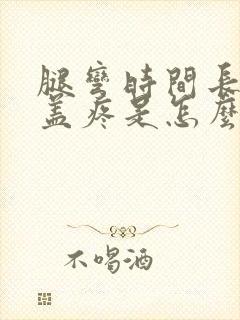 腿彎時間長
蓋疼是怎麼
不喝酒